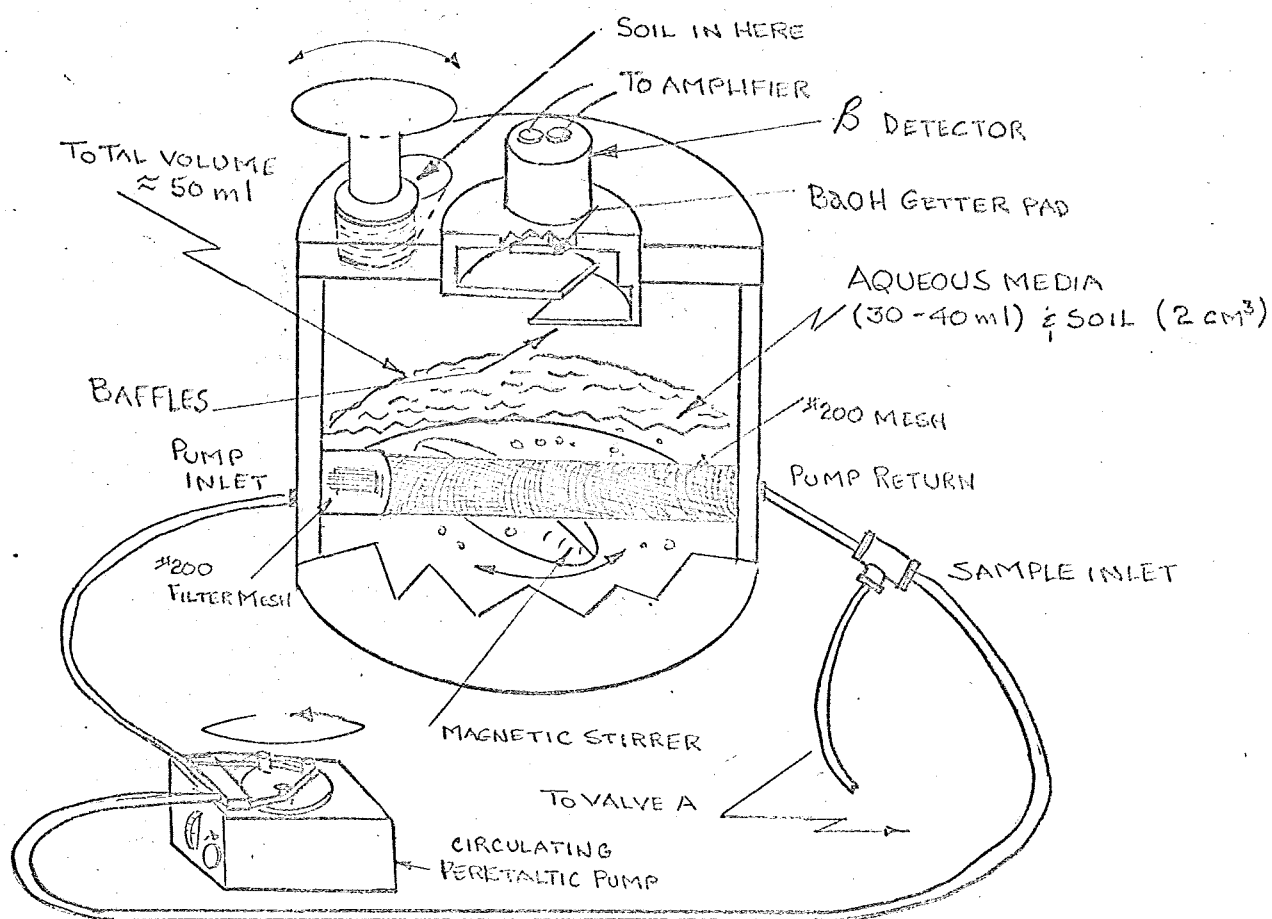 SOIL IN HERE
TO AMPLIFIER
β DETECTOR
TOTAL VOLUME
≈ 50 ml
BaOH GETTER PAD
AQUEOUS MEDIA
(30-40 ml) & SOIL (2 cm³)
BAFFLES
#200 MESH
PUMP
INLET
PUMP RETURN
#200
FILTER MESH
SAMPLE INLET
MAGNETIC STIRRER
TO VALVE A
CIRCULATING
PERETALTIC PUMP